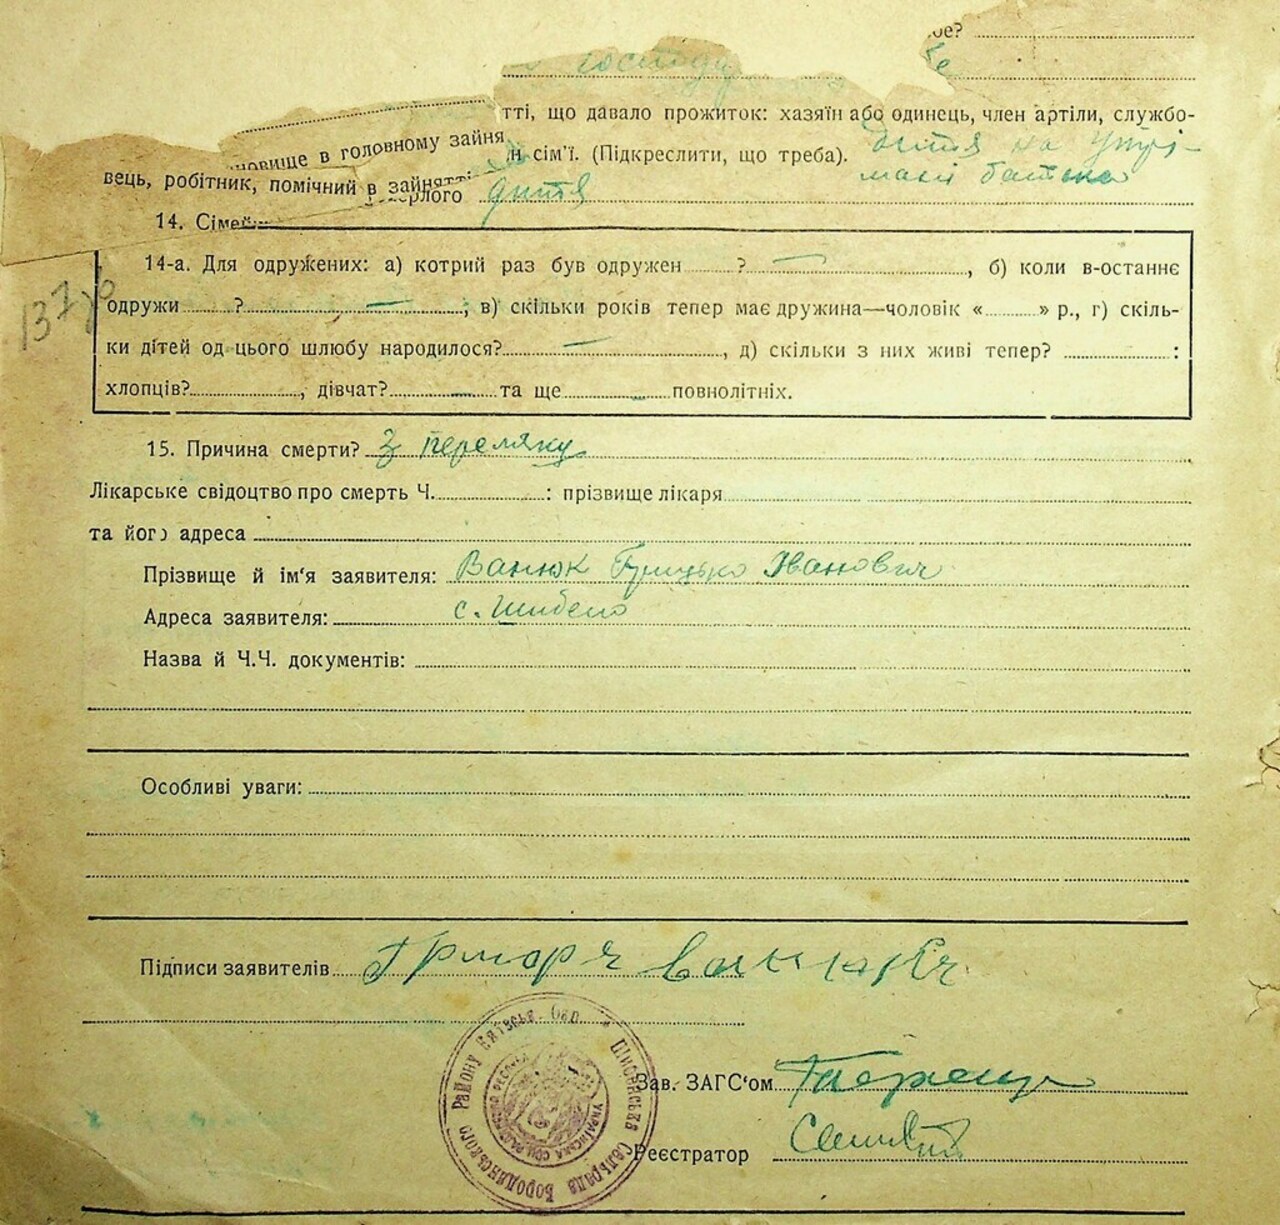 ое?
господ
тті, що давало прожиток: хазяїн або одинець, член артіли, службо-
новище в головному зайня
н сім'ї. (Підкреслити, що треба). дитя на утрі-
манні батька
вець, робітник, помічний в зайнятті
ерлого дитя
14. Сімей
14-а. Для одружених: а) котрий раз був одружен ? —, б) коли в-останнє
одружи ? —; в) скільки років тепер має дружина—чоловік « » р., г) скіль-
ки дітей од цього шлюбу народилося? —, д) скільки з них живі тепер? :
137
хлопців? , дівчат? — та ще — повнолітніх.
15. Причина смерти? З переляку
Лікарське свідоцтво про смерть Ч. : прізвище лікаря
та його адреса
Прізвище й ім'я заявителя: Ванюк Грицько Іванович
Адреса заявителя: с. Шибено
Назва й Ч.Ч. документів:
Особливі уваги:
Підписи заявителів
Бородянського Району Київськ. Обл.
Сельрада
Українська Соц. Рад.
Зав. ЗАГС'ом
Реєстратор